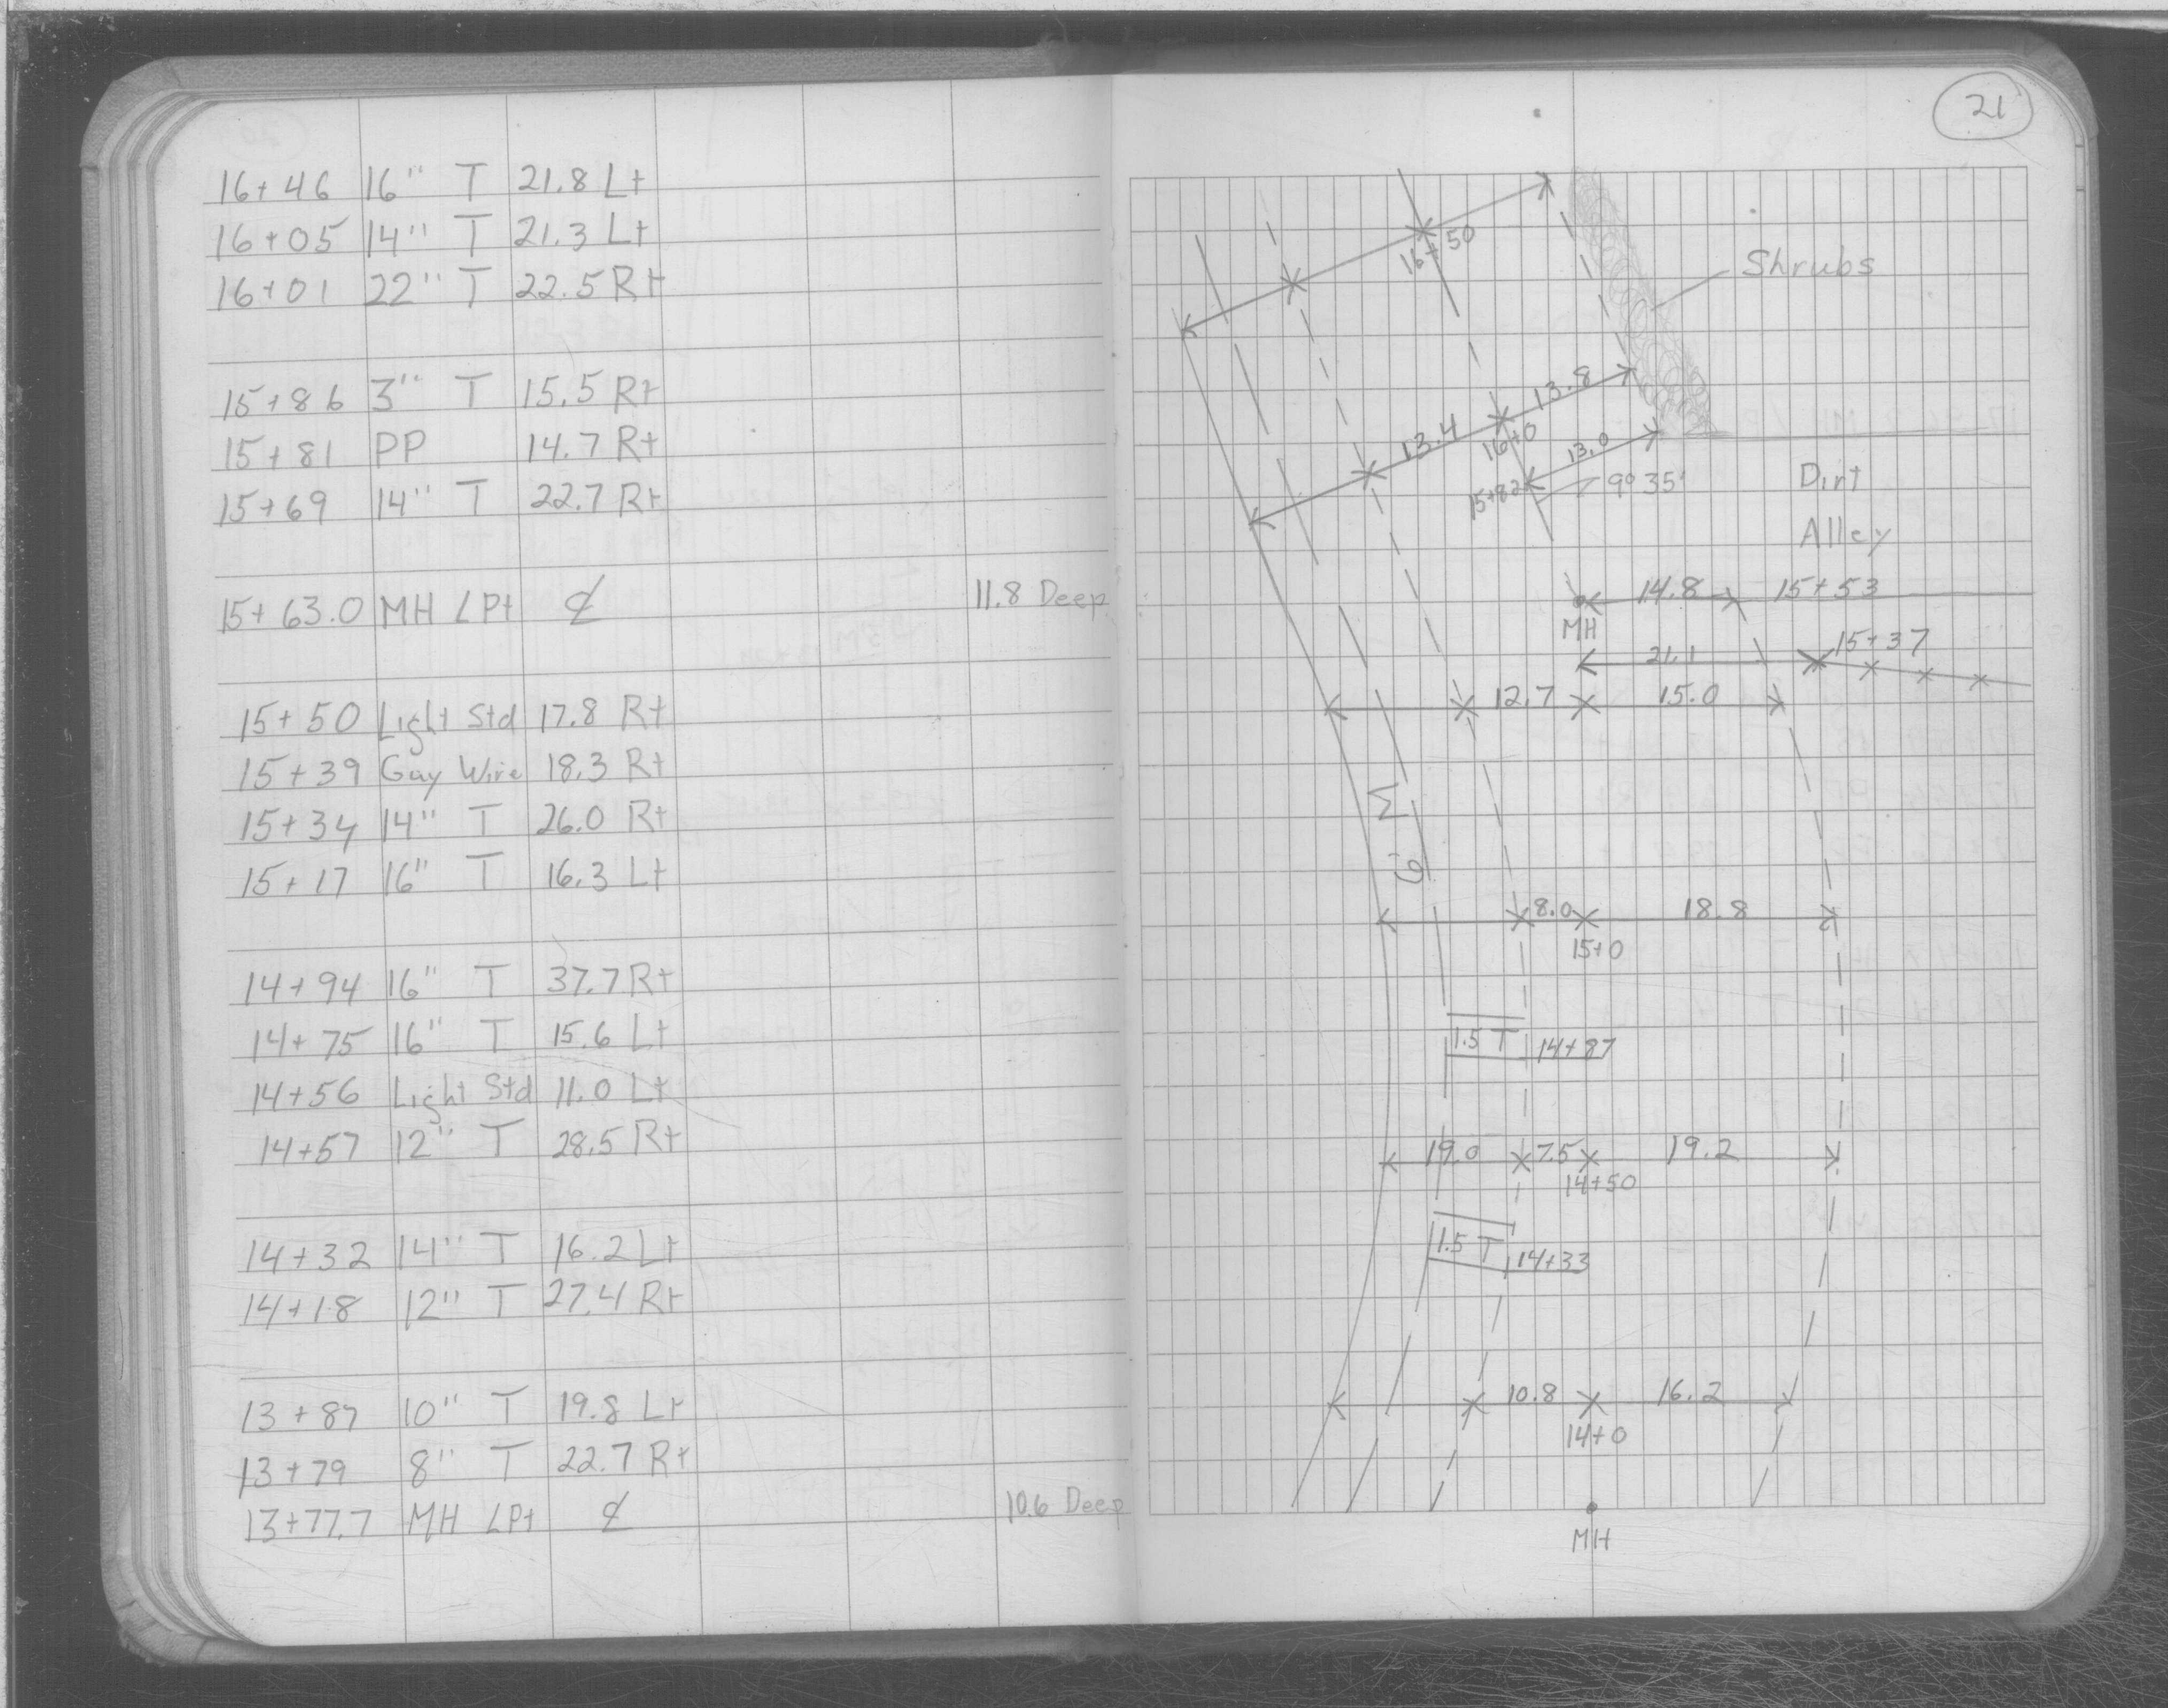 16+46 16" T 21.8 Lt
16+05 14" T 21.3 Lt
16+01 22" T 22.5 Rt
15+86 3" T 15.5 Rt
15+81 PP 14.7 Rt
15+69 14" T 22.7 Rt
15+63.0 MH LPt ℄ 11.8 Deep
15+50 Light Std 17.8 Rt
15+39 Guy Wire 18.3 Rt
15+34 14" T 26.0 Rt
15+17 16" T 16.3 Lt
14+94 16" T 37.7 Rt
14+75 16" T 15.6 Lt
14+56 Light Std 11.0 Lt
14+57 12" T 28.5 Rt
14+32 14" T 16.2 Lt
14+18 12" T 27.4 Rt
13+87 10" T 19.8 Lt
13+79 8" T 22.7 Rt
13+77.7 MH LPt ℄ 10.6 Deep
21
16+50
Shrubs
13.8
13.4
16+0
13.0
15+82
9°35'
Dirt
Alley
14.8 15+53
MH
21.1 15+37
12.7 15.0
8.0 18.8
15+0
1.5 T 14+87
19.0 7.5 19.2
14+50
1.5 T 14+33
10.8 16.2
14+0
MH